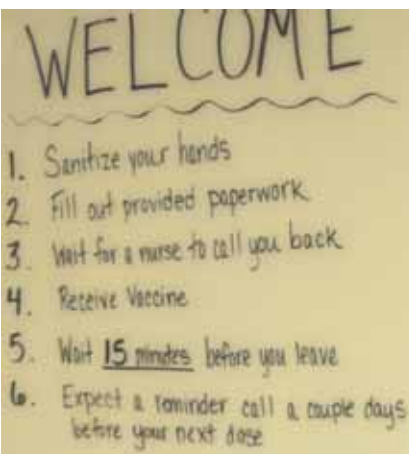 WELCOME
1. Sanitize your hands
2. Fill out provided paperwork
3. Wait for a nurse to call you back
4. Receive Vaccine
5. Wait 15 minutes before you leave
6. Expect a reminder call a couple days
before your next dose